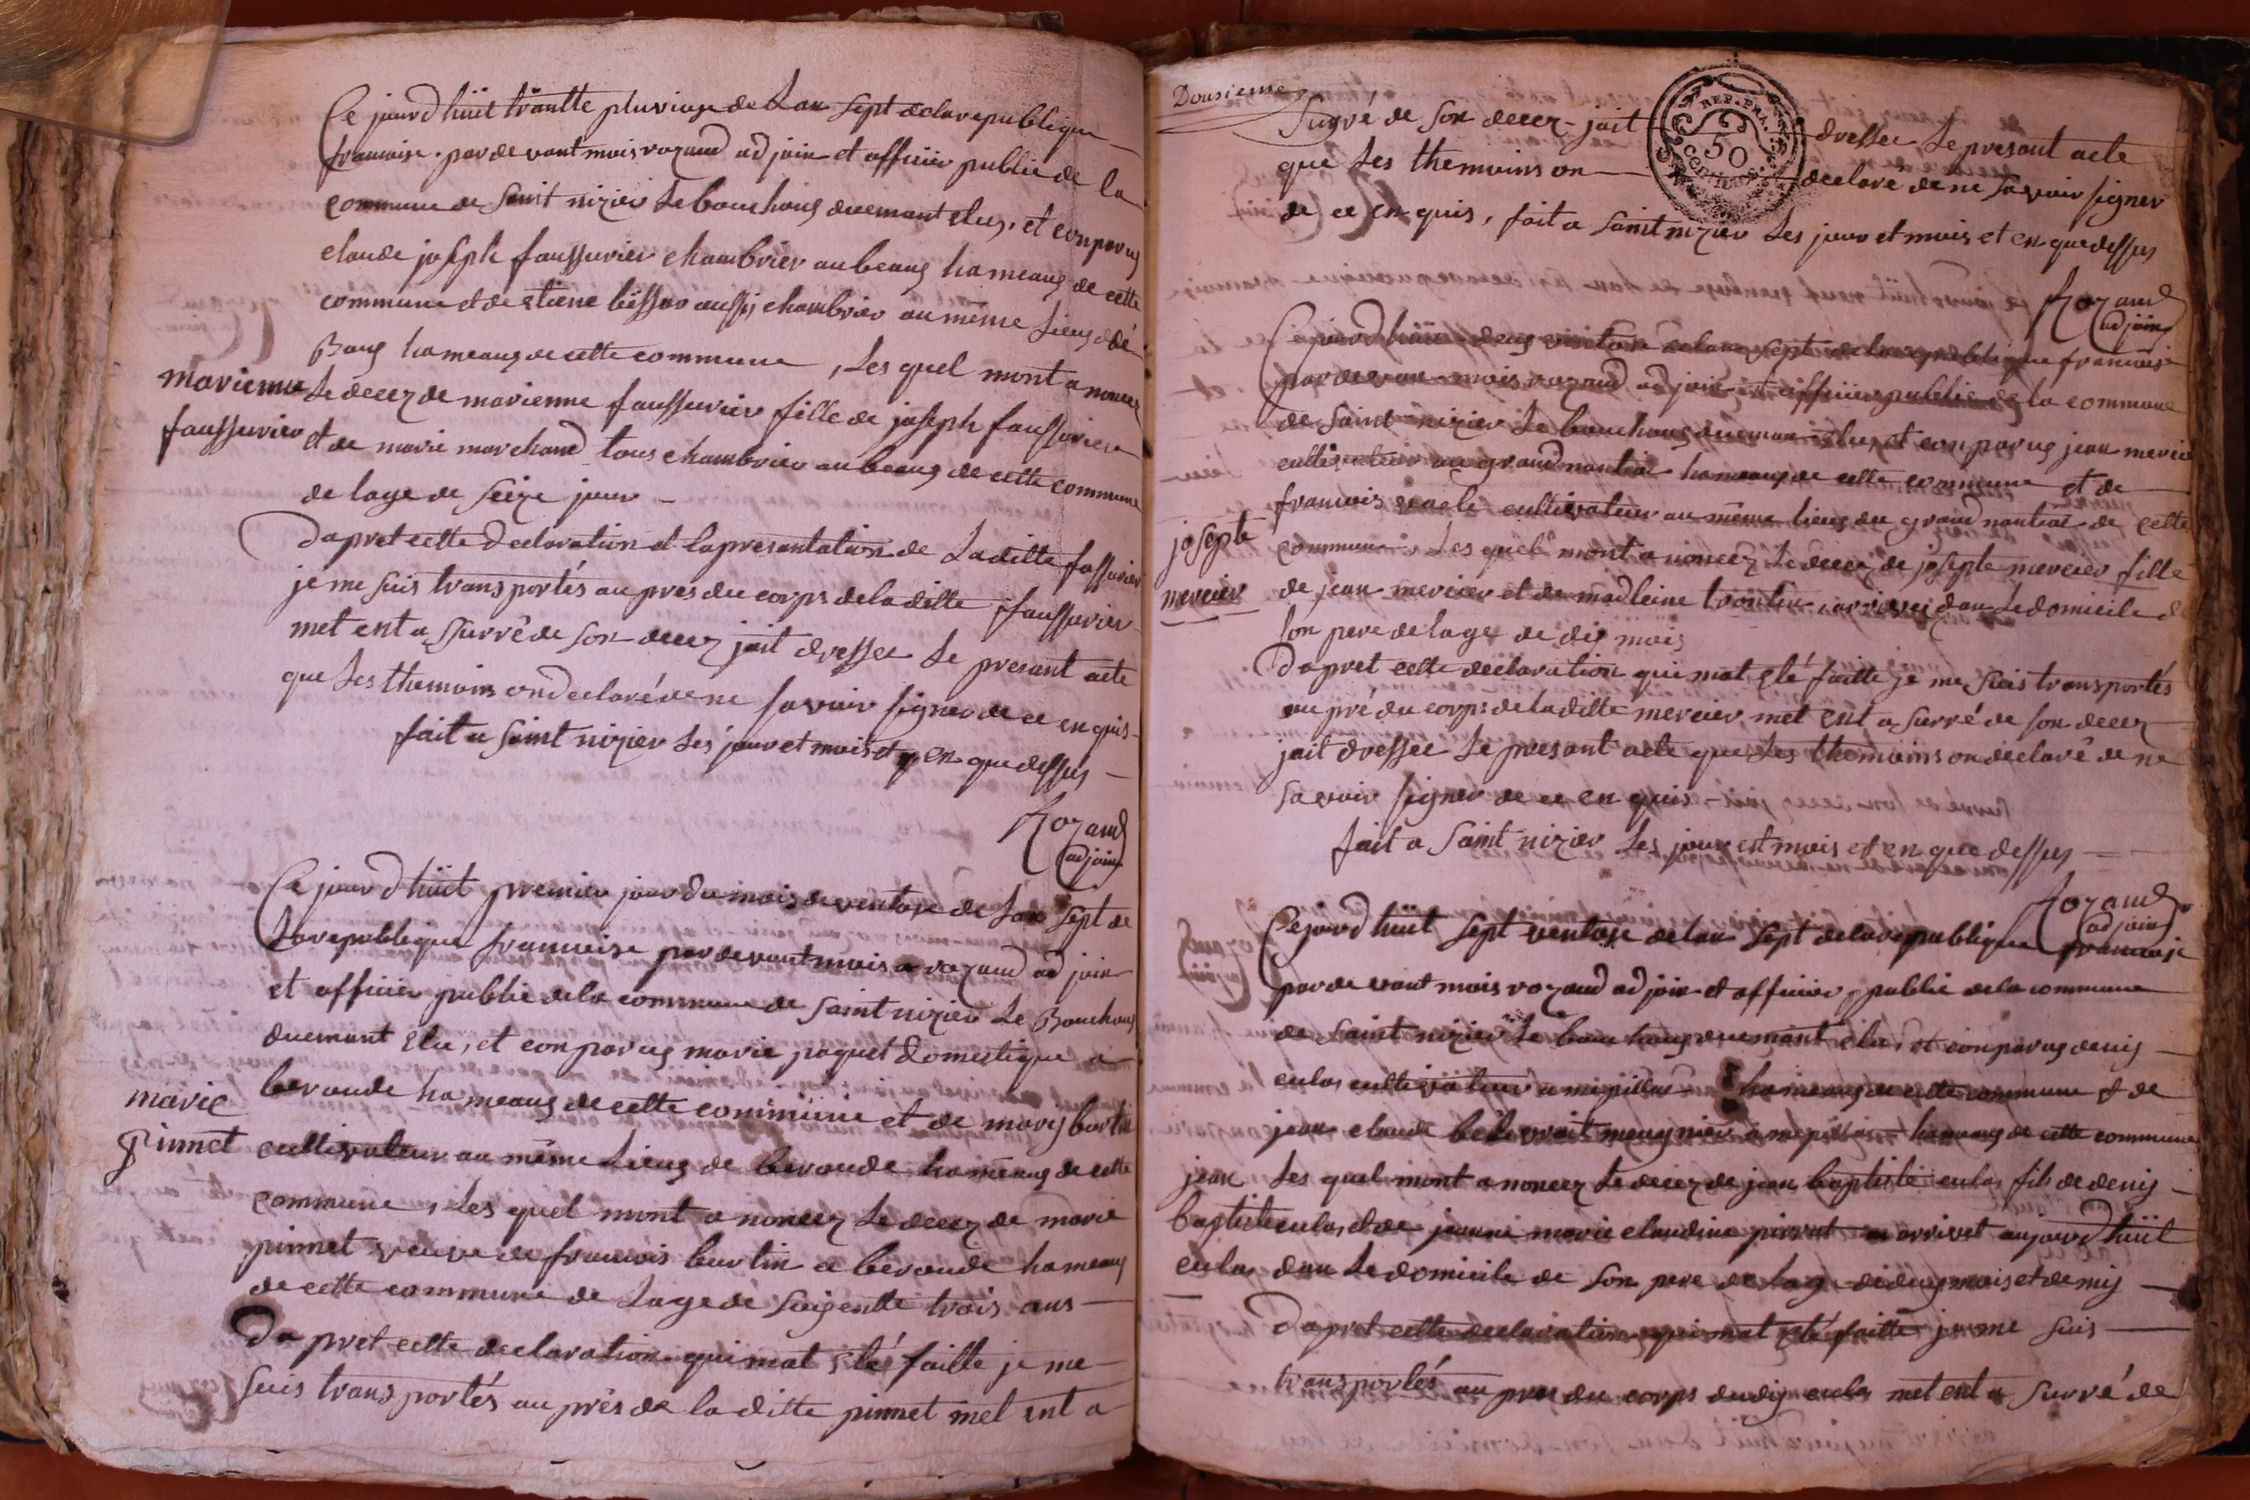 Ce jourd huit trantte pluviose de Lan Sept delarepublique
francoise. par devant mois rozand ad join et officiier public de la
commune de Saint nizier Le bouchoug duemant elug, et conparug
claude joseph faussurier chambrier au beaug hameaug de cette
commune et de etiene bessar aussy chambrier au même Lieug de
Baug hameaug de cette commune, Les quel mont a noncez
marienne
faussurier
Le decez de marienne faussurier fille de joseph faussurier
et de marie marchand tous chambrier au beaug de cette commune
de lage de Seize jour
Da pret cette declaration et la presantation de Laditte fassurier
je me suis transportés au pres du corps de la ditte faussurier
met ent a Surré de son decez jait dressee Le presant acte
que Les themoins on declaré de ne savoir signer de ce en quis
fait a Saint nizier Les jour et mois et en que dessus
Rozand
adjoin
Ce jourd huit premier jour du mois de ventose de Lan Sept de
Larepublique francoise par devant mois rozand ad join
et officiier public de la commune de Saint nizier Le Bouchoug
duemant Elu, et conparug marie paquet domestique a
beroude hameaug de cette commune et de marig bortin
marie
pinnet
cultivateur au même Lieug de beroude hameaug de cette
commune, Les quel mont a noncez Le decez de marie
pinnet veuve de francois burtin a beroude hameaug
de cette commune de Lage de Soigentte trois ans
Da pret cette declaration qui mat été faitte je me
suis transportés au près de la ditte pinnet met ent a
Dousieme
Surré de son decez jait dressee Le presant acte
REP. FRA.
50
centimes
que Les themoins on declaré de ne Savoir signer
de ce en quis, fait a Saint nizier Les jour et mois et en que dessus
Rozand
adjoin
Ce jourd huit deug ventose delan Sept delarepublique francoise
par devan mois rozand ad join et officiier public de la commune
de Saint nizier Le bouchoug duemant elu, et conparug jean mercier
cultivateur au grand nantai hameaug de cette commune et de
francois vacle cultivateur au même lieug du grand nantai de cette
josepte
mercier
commune. Les quel mont a noncez Le decez de josepte mercier fille
de jean mercier et de madleine trontin, arrivez dan Le domicile de
son pere de lage de dis mois
Da pret cette declaration qui mat été faitte je me suis transportés
au pré du corps de laditte mercier met ent a surré de son decez
jait dressee Le presant acte que Les themoins on declaré de ne
savoir signer de ce en quis
fait a Saint nizier Les jour et mois et en que dessus
Rozand
adjoin
Ce jourd huit Sept ventose delan Sept delarepublique francoise
par devant mois rozand ad join et officiier public de la commune
de Saint nizier Le bouchoug duemant elu, et conparug denis
culas cultivateur a mipillat hameaug de cette commune et de
jean claude meugnier a mipillat hameaug de cette commune
jean
baptiste
culas
Les quel mont a noncez Le decez de jean baptiste culas fils de denis
culas, et de jeanne marie claudine pirrat arrivet aujourd huit
dan Le domicile de son pere de lag de deug mois et demis
Da pret cette declaration qui mat été faitte je me suis
transportés au pres du corps dudis culas met ent a surré de